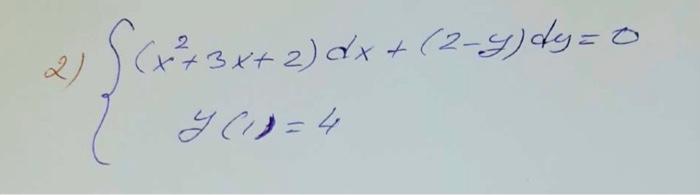 2) { (x²+3x+2)dx + (2-y)dy=0
y(1)=4